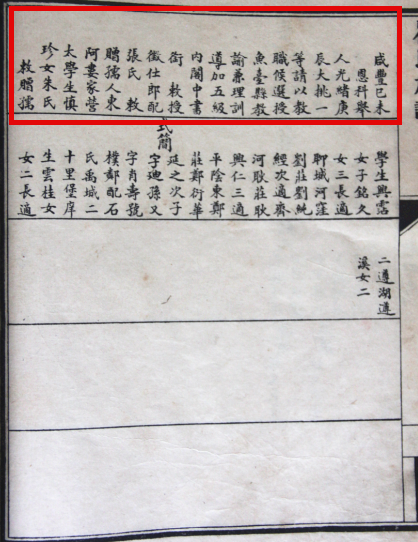 咸豐己未
恩科舉
人光緒庚
辰大挑一
等請以教
職候選授
魚臺縣教
諭兼理訓
導加五級
內閣中書
銜 敕授
徵仕郎配
張氏 敕
贈孺人東
阿婁家營
太學生慎
珍女朱氏
敕贈孺
學生興霑
女子銘久
女三長適
聊城河窪
劉莊劉統
經次適齊
河耿莊耿
興仁三適
平陰東鄭
莊鄭衍華
延之次子
式簡
字廼孫又
字肖壽號
樸鄰配石
氏禹城二
十里堡庠
生雲桂女
女二長適
二遵湖遵
溪女二